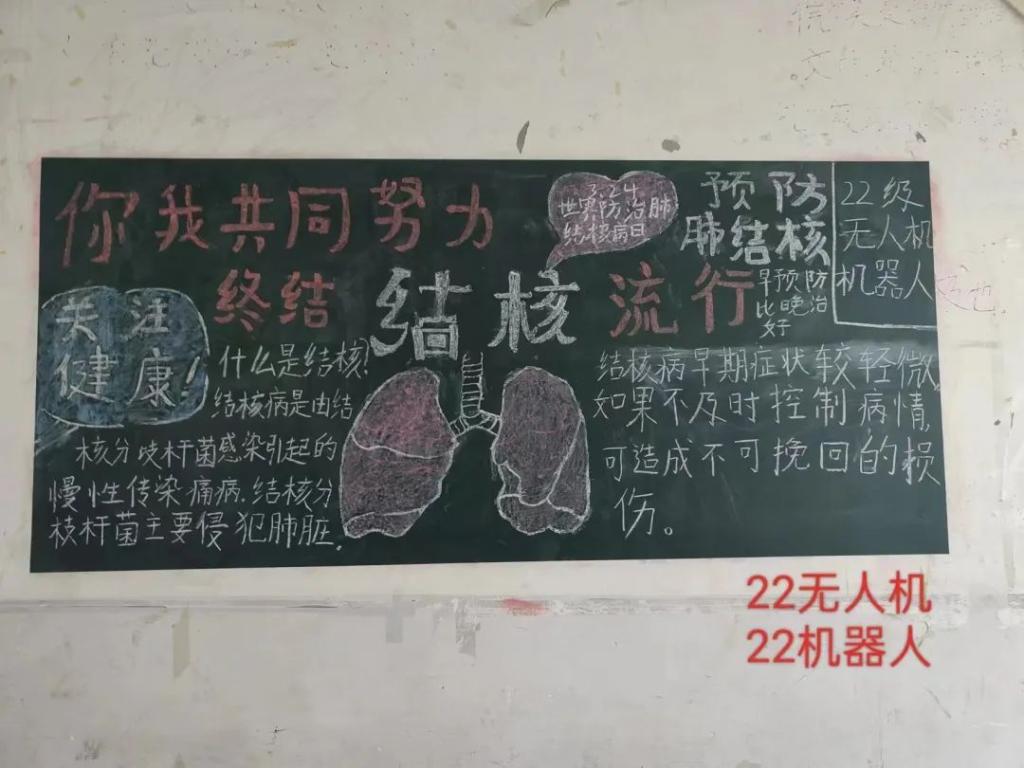 你我共同努力
终结结核流行
3.24
世界防治肺
结核病日
预防
肺结核
早预防
比晚治
好
22级
无人机
机器人
关注
健康!
什么是结核?
结核病是由结
核分歧杆菌感染引起的
慢性传染痛病.结核分
枝杆菌主要侵犯肺脏.
结核病早期症状较轻微,
如果不及时控制病情,
可造成不可挽回的损
伤。
22无人机
22机器人